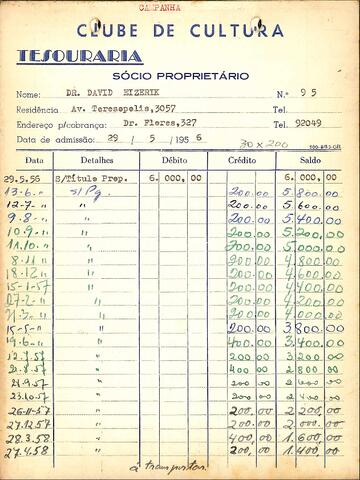 CAMPANHA
CLUBE DE CULTURA
TESOURARIA
SÓCIO PROPRIETÁRIO
Nome: DR. DAVID EIZERIK N.º 95
Residência Av. Teresopolis,3057 Tel.
Endereço p/cobrança: Dr. Flores,327 Tel. 92049
Data de admissão: 29 / 5 / 1956 30 x 200
Data Detalhes Débito Crédito Saldo
29.5.56 S/Título Prop. 6. 000, 00 6. 000, 00
13-6-" s/ Pg. 200,00 5.800,00
12-7-" " 200,00 5.600,00
9-8-" " 200,00 5.400,00
10.9-" " 200,00 5.200,00
11.10-" " 200,00 5.000,00
8-11-" " 200,00 4.800,00
18-12-" " 200,00 4.600,00
15-1-57 " 200,00 4.400,00
27-2-" " 200,00 4.200,00
21.3-" " 200,00 4.000,00
15-5-" " 200,00 3.800,00
19-6-" " 400,00 3.400,00
12.7.57 " 200,00 3.200,00
21.8.57 " 400,00 2.800,00
24.9.57 " 200,00 2.600,00
23.10.57 " 200,00 2.400,00
26-11-57 " 200,00 2.200,00
27.12.57 " 200,00 2.000,00
28.3.58 " 400,00 1.600,00
27.4.58 " 200,00 1.400,00
à transportar